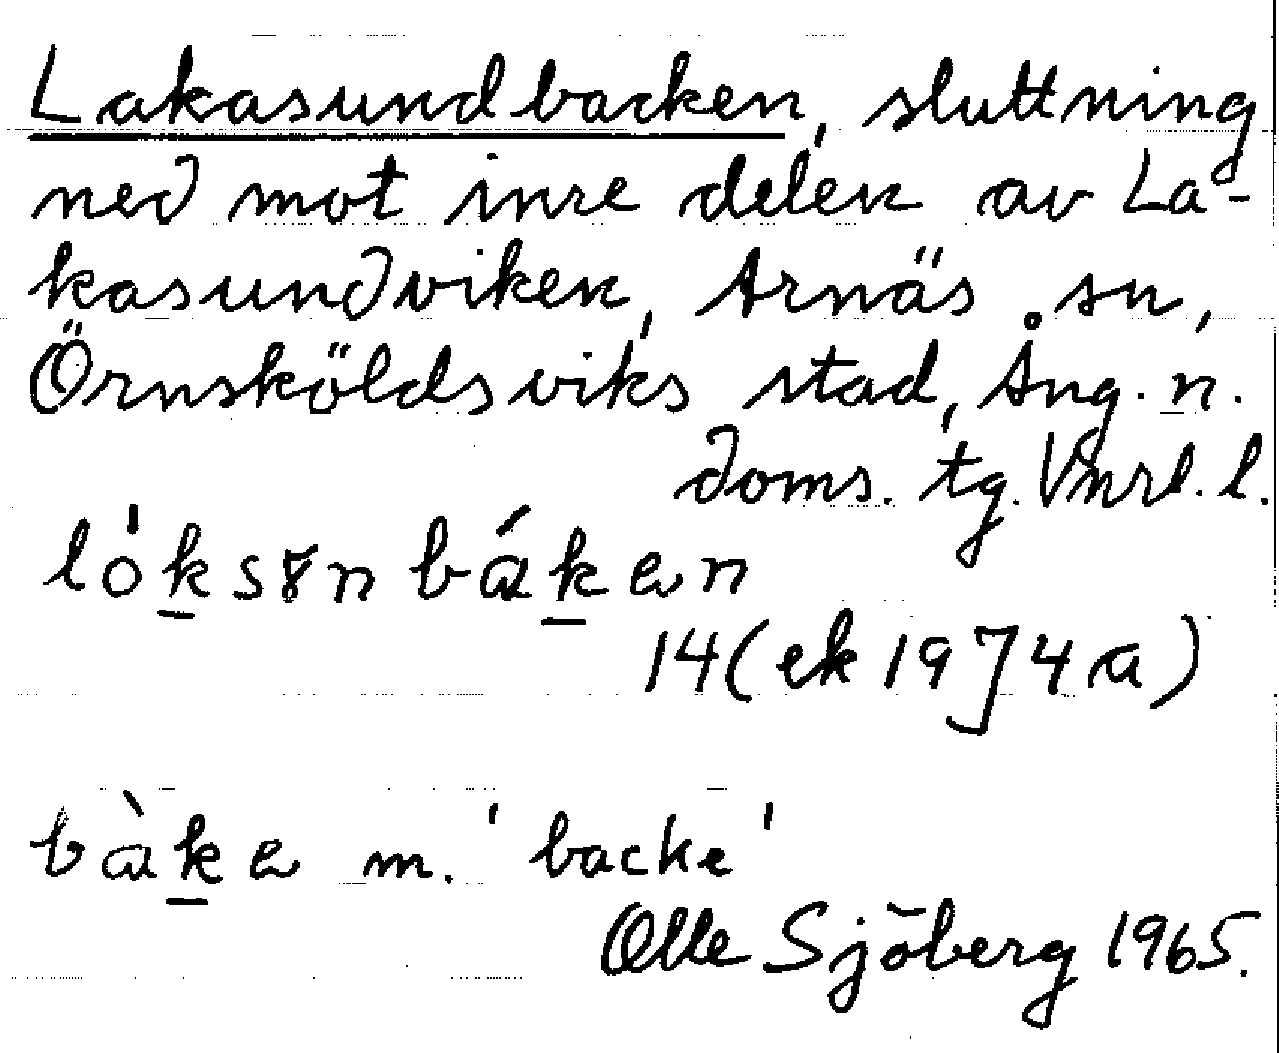 Lakasundbacken, sluttning
ned mot inre delen av La-
kasundviken, Arnäs sn,
Örnsköldsviks stad, Ång. n.
doms. tg. Vnrl. l.
lók̲sɤn bák̲en
14 (ek 19 J 4 a)
bàk̲e m. 'backe'
Olle Sjöberg 1965.